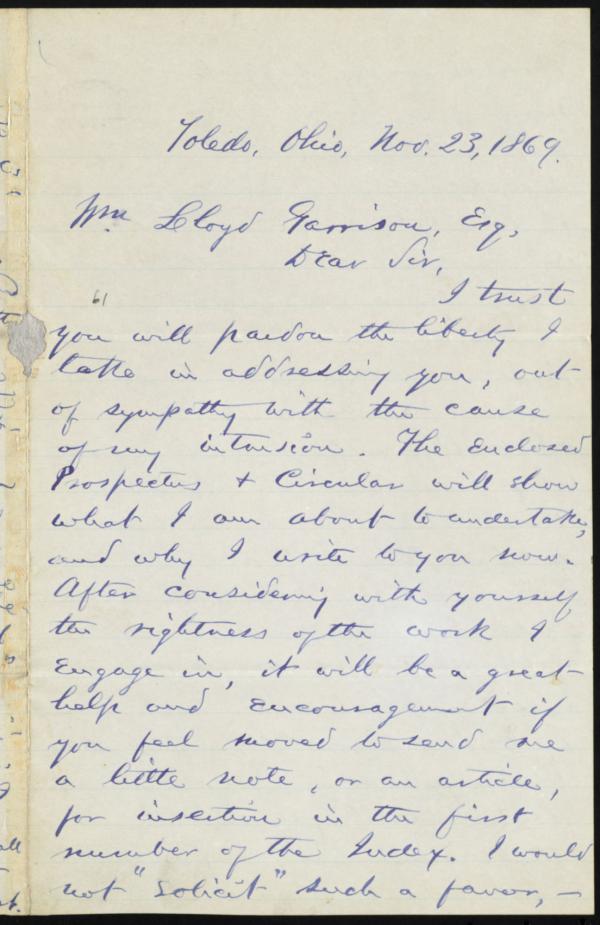 Toledo, Ohio, Nov. 23, 1869.
Wm Lloyd Garrison, Esq,
Dear Sir,
I trust
61
you will pardon the liberty I
take in addressing you, out
of sympathy with the cause
of my intrusion. The enclosed
Prospectus & Circular will show
what I am about to undertake,
and why I write to you now.
After considering with yourself
the rightness of the work I
engage in, it will be a great
help and encouragement if
you feel moved to send me
a little note, or an article,
for insertion in the first
number of the Index. I would
not "solicit" such a favor, —